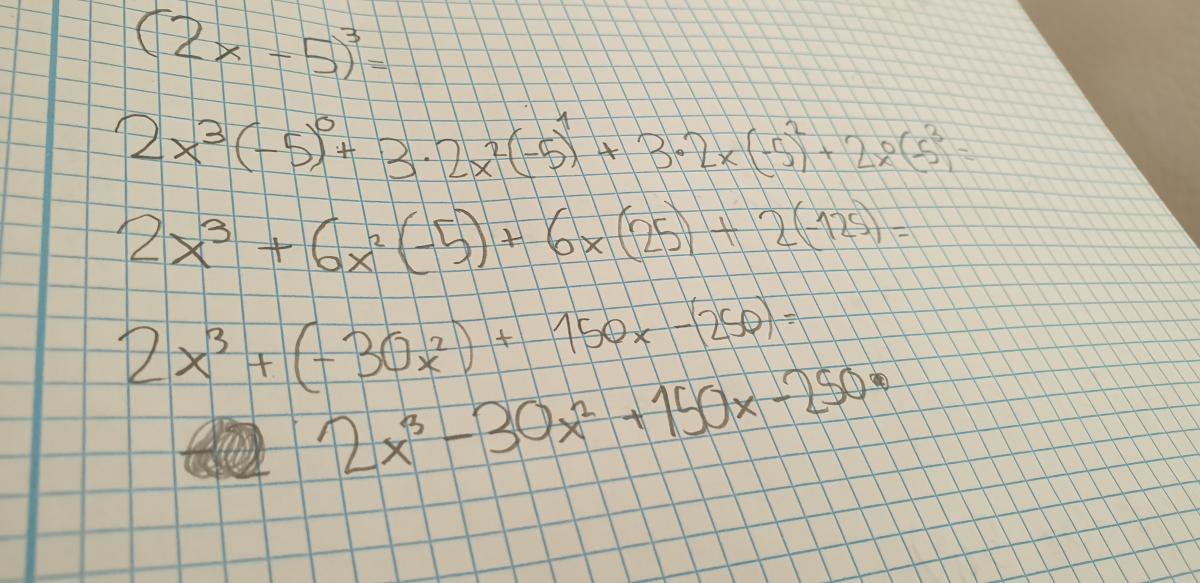 (2x - 5)³ =
2x³(-5)⁰ + 3·2x²(-5)¹ + 3·2x(-5)² + 2x⁰(-5)³ =
2x³ + 6x²(-5) + 6x(25) + 2(-125) =
2x³ + (-30x²) + 150x - (250) =
2x³ - 30x² + 150x - 250